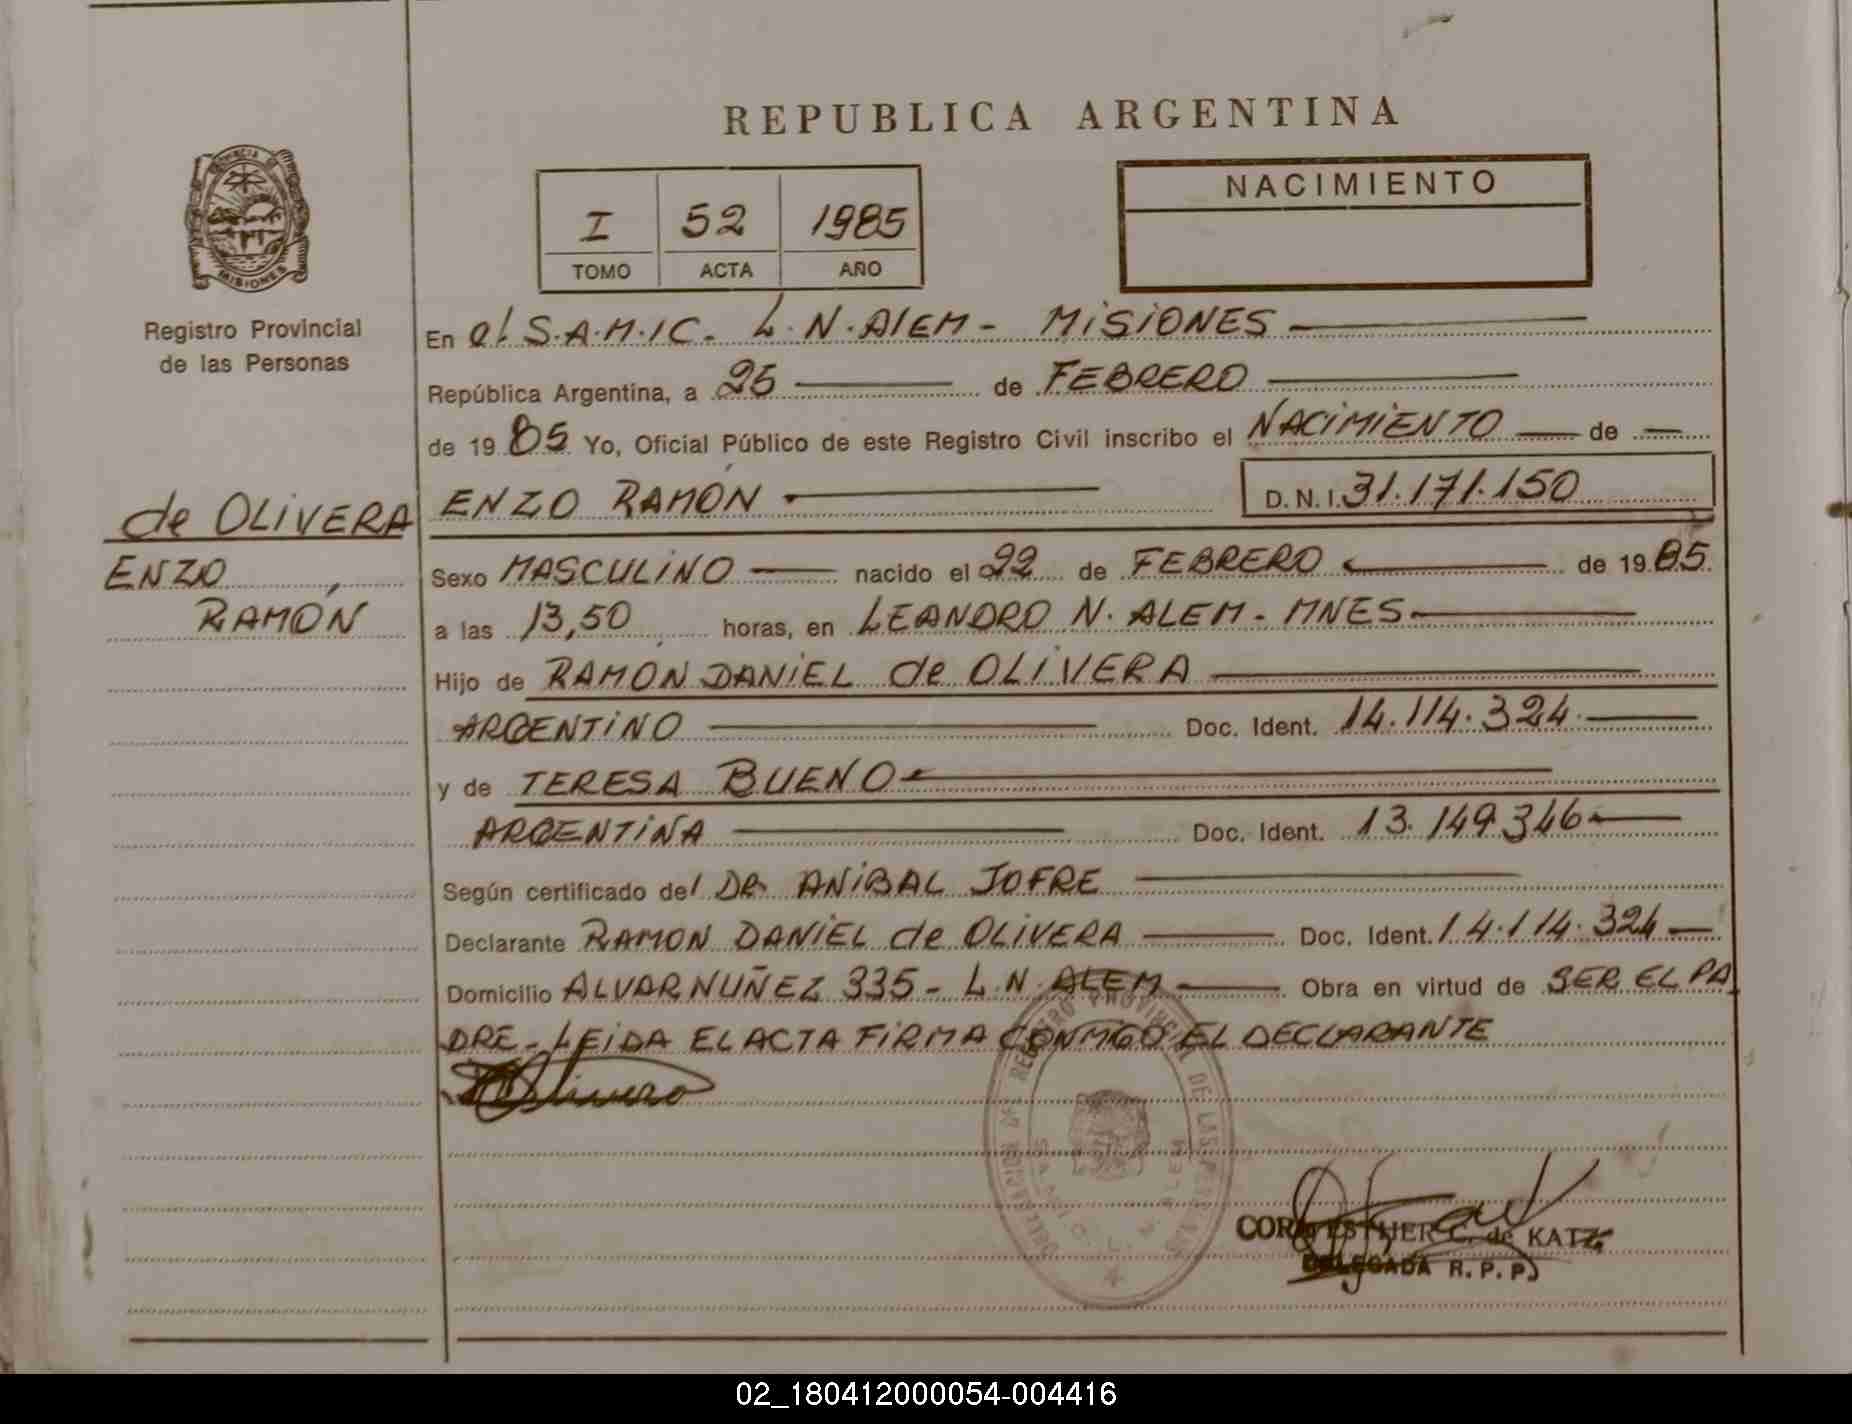 REPUBLICA ARGENTINA
PROVINCIA DE
MISIONES
Registro Provincial
de las Personas
I 52 1985
TOMO ACTA AÑO
NACIMIENTO
En el S.A.M.I.C. L.N. AlEM - MISIONES
República Argentina, a 25 de FEBRERO
de 1985 Yo, Oficial Público de este Registro Civil inscribo el NACIMIENTO de
de OLIVERA
ENZO
RAMÓN
ENZO RAMÓN D.N.I. 31.171.150
Sexo MASCULINO nacido el 22 de FEBRERO de 1985.
a las 13,50 horas, en LEANDRO N. ALEM - MNES
Hijo de RAMÓN DANIEL de OLIVERA
ARGENTINO Doc. Ident. 14.114.324
y de TERESA BUENO
ARGENTINA Doc. Ident. 13.149.346
Según certificado del DR ANIBAL JOFRE
Declarante RAMON DANIEL de OLIVERA Doc. Ident. 14.114.324
Domicilio ALVAR NUÑEZ 335 - L.N. ALEM Obra en virtud de SER EL PA
DRE - LEIDA EL ACTA FIRMA CONMIGO EL DECLARANTE
Olivera
REGISTRO PROVINCIAL DE LAS PERSONAS
CORA ESTHER C. de KATZ
DELEGADA R.P.P.
02_180412000054-004416